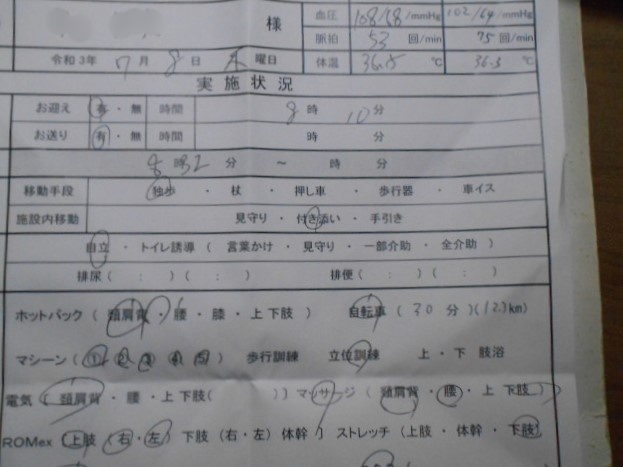 様 血圧 108/68/mmHg 102/64/mmHg
脈拍 53 回/min 75 回/min
令和3年 7月 8日 木曜日 体温 36.5 ℃ 36.5 ℃
実施状況
お迎え 有・無 時間 8時 10分
お送り 有・無 時間 時 分
8時32分 ～ 時 分
移動手段 独歩 ・ 杖 ・ 押し車 ・ 歩行器 ・ 車イス
施設内移動 見守り ・ 付き添い ・ 手引き
自立 ・ トイレ誘導 ( 言葉かけ ・ 見守り ・ 一部介助 ・ 全介助 )
排尿 ( : ) ( : ) 排便 ( : ) ( : )
ホットパック ( 頚肩背 ・ 腰 ・ 膝 ・ 上 下肢 ) 自転車 ( 30 分 )(12.3km)
マシーン ( ① ② ③ ④ ⑤ ) 歩行訓練 立位訓練 上 ・ 下 肢浴
電気 ( 頚肩背 ・ 腰 ・ 上 下肢( ) ) マッサージ ( 頚肩背 ・ 腰 ・ 上 下肢 )
ROMex (上肢 (右・左) 下肢 (右・左) 体幹 ) ストレッチ (上肢 ・ 体幹 ・ 下肢)